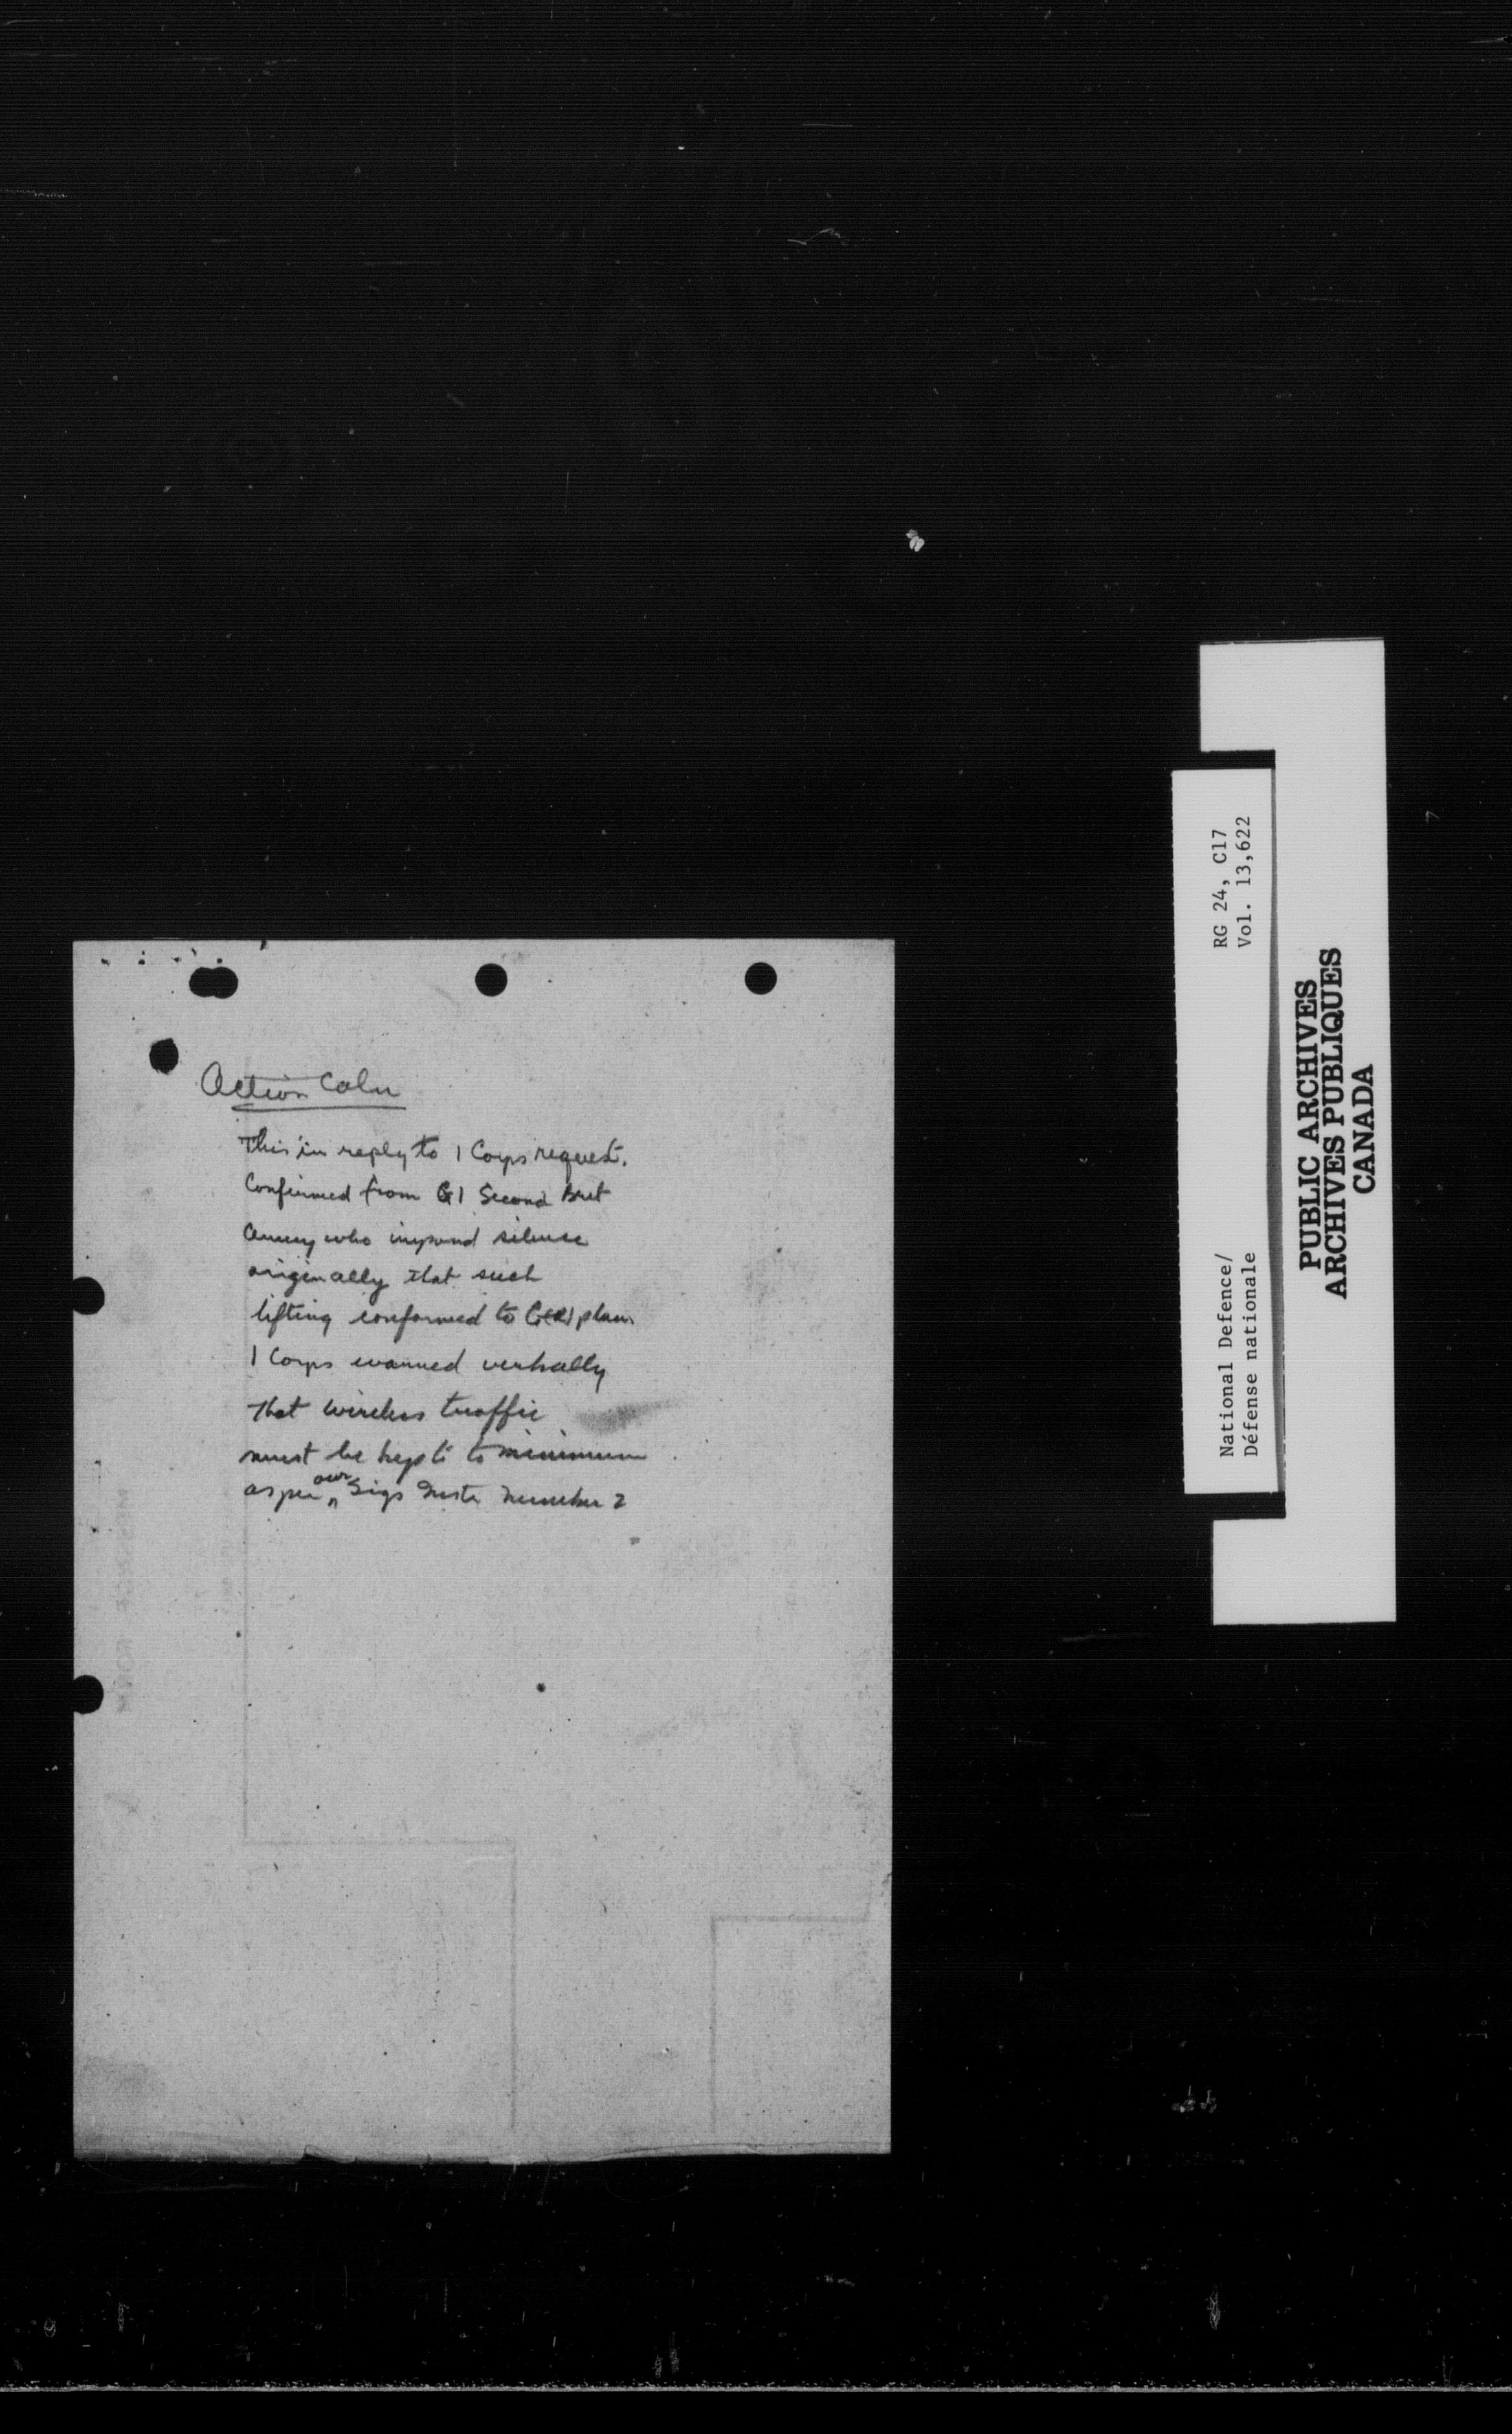 Action Colm
This in reply to 1 Corps request.
Confirmed from G1 Second Brit
Army who imposed silence
originally that such
lifting conformed to G(R) plan
1 Corps warned verbally
that wireless traffic
must be kept to minimum
as per our Sigs Instr number 2
National Defence/ RG 24, C17
Défense nationale Vol. 13,622
PUBLIC ARCHIVES
ARCHIVES PUBLIQUES
CANADA